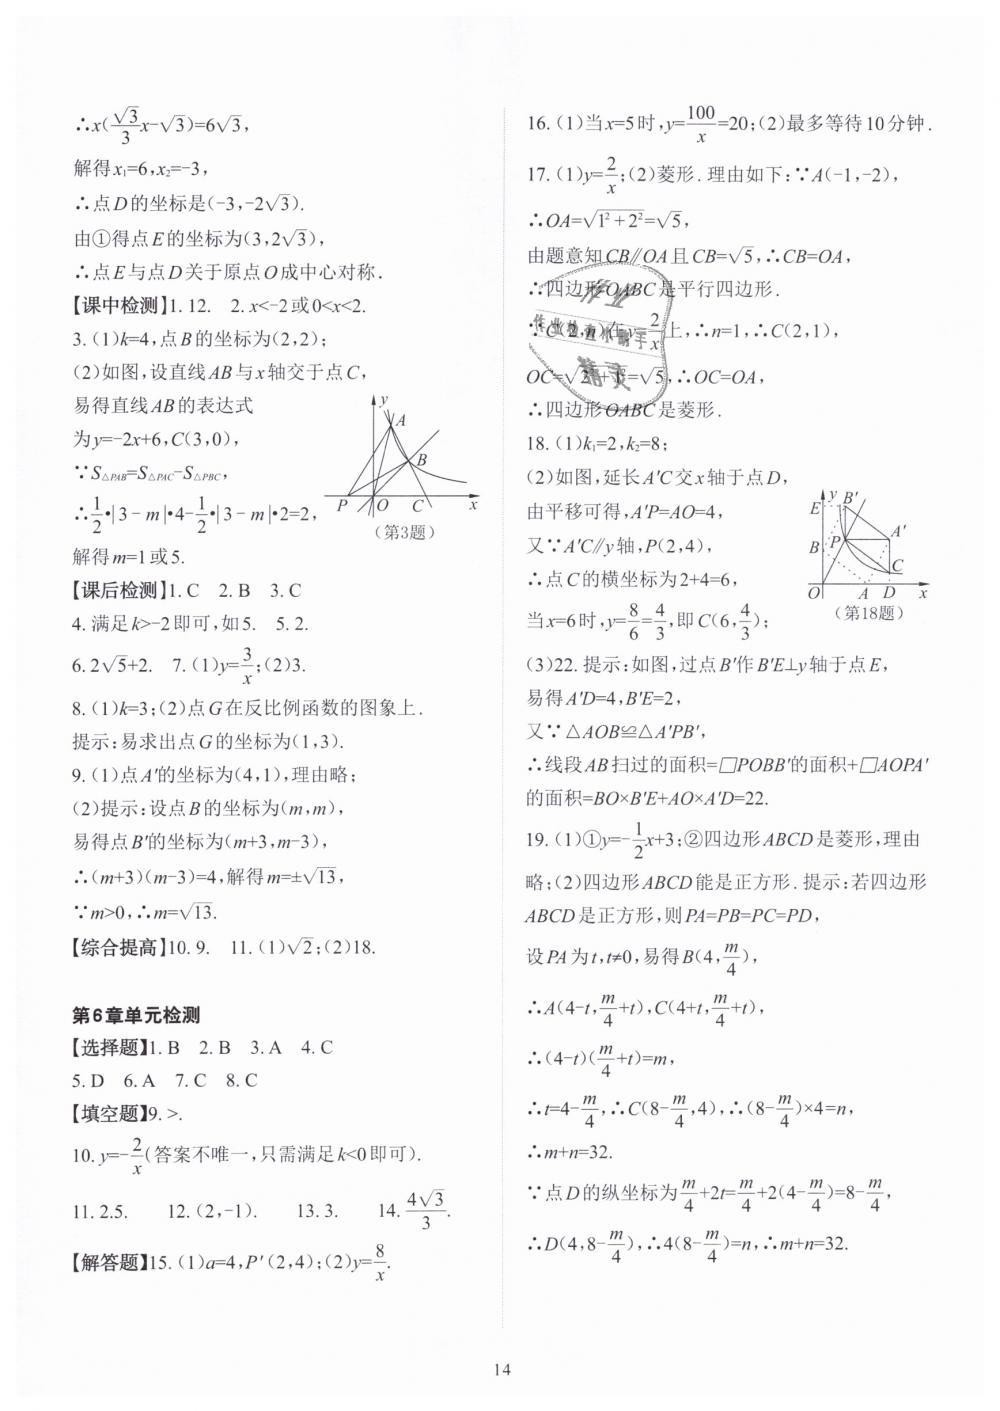 ∴x(√3/3 x-√3)=6√3,
解得x₁=6,x₂=-3,
∴点D的坐标是(-3,-2√3).
由①得点E的坐标为(3,2√3),
∴点E与点D关于原点O成中心对称.
【课中检测】1. 12.  2. x<-2或0<x<2.
3. (1)k=4,点B的坐标为(2,2);
(2)如图,设直线AB与x轴交于点C,
易得直线AB的表达式
为y=-2x+6,C(3,0),
∵S△PAB=S△PAC-S△PBC,
∴1/2·|3-m|·4-1/2·|3-m|·2=2,
解得m=1或5.
y A B P O C x
(第3题)
【课后检测】1. C  2. B  3. C
4. 满足k>-2即可,如5.  5. 2.
6. 2√5+2.  7. (1)y=3/x;(2)3.
8. (1)k=3;(2)点G在反比例函数的图象上.
提示:易求出点G的坐标为(1,3).
9. (1)点A′的坐标为(4,1),理由略;
(2)提示:设点B的坐标为(m,m),
易得点B′的坐标为(m+3,m-3),
∴(m+3)(m-3)=4,解得m=±√13,
∵m>0,∴m=√13.
【综合提高】10. 9.  11. (1)√2;(2)18.
第6章单元检测
【选择题】1. B  2. B  3. A  4. C
5. D  6. A  7. C  8. C
【填空题】9. >.
10. y=-2/x(答案不唯一,只需满足k<0即可).
11. 2.5.  12. (2,-1).  13. 3.  14. 4√3/3.
【解答题】15. (1)a=4,P′(2,4);(2)y=8/x.
16. (1)当x=5时,y=100/x=20;(2)最多等待10分钟.
17. (1)y=2/x;(2)菱形.理由如下:∵A(-1,-2),
∴OA=√1²+2²=√5,
由题意知CB∥OA且CB=√5,∴CB=OA,
∴四边形OABC是平行四边形.
∵C(2,n)在y=2/x上,∴n=1,∴C(2,1),
OC=√2²+1²=√5,∴OC=OA,
∴四边形OABC是菱形.
作业
作业检查小助手
精灵
18. (1)k₁=2,k₂=8;
(2)如图,延长A′C交x轴于点D,
由平移可得,A′P=AO=4,
又∵A′C∥y轴,P(2,4),
∴点C的横坐标为2+4=6,
当x=6时,y=8/6=4/3,即C(6,4/3);
E y B′ A′ B P C O A D x
(第18题)
(3)22. 提示:如图,过点B′作B′E⊥y轴于点E,
易得A′D=4,B′E=2,
又∵△AOB≌△A′PB′,
∴线段AB扫过的面积=□POBB′的面积+□AOPA′
的面积=BO×B′E+AO×A′D=22.
19. (1)①y=-1/2x+3;②四边形ABCD是菱形,理由
略;(2)四边形ABCD能是正方形.提示:若四边形
ABCD是正方形,则PA=PB=PC=PD,
设PA为t,t≠0,易得B(4,m/4),
∴A(4-t,m/4+t),C(4+t,m/4+t),
∴(4-t)(m/4+t)=m,
∴t=4-m/4,∴C(8-m/4,4),∴(8-m/4)×4=n,
∴m+n=32.
∵点D的纵坐标为m/4+2t=m/4+2(4-m/4)=8-m/4,
∴D(4,8-m/4),∴4(8-m/4)=n,∴m+n=32.
14